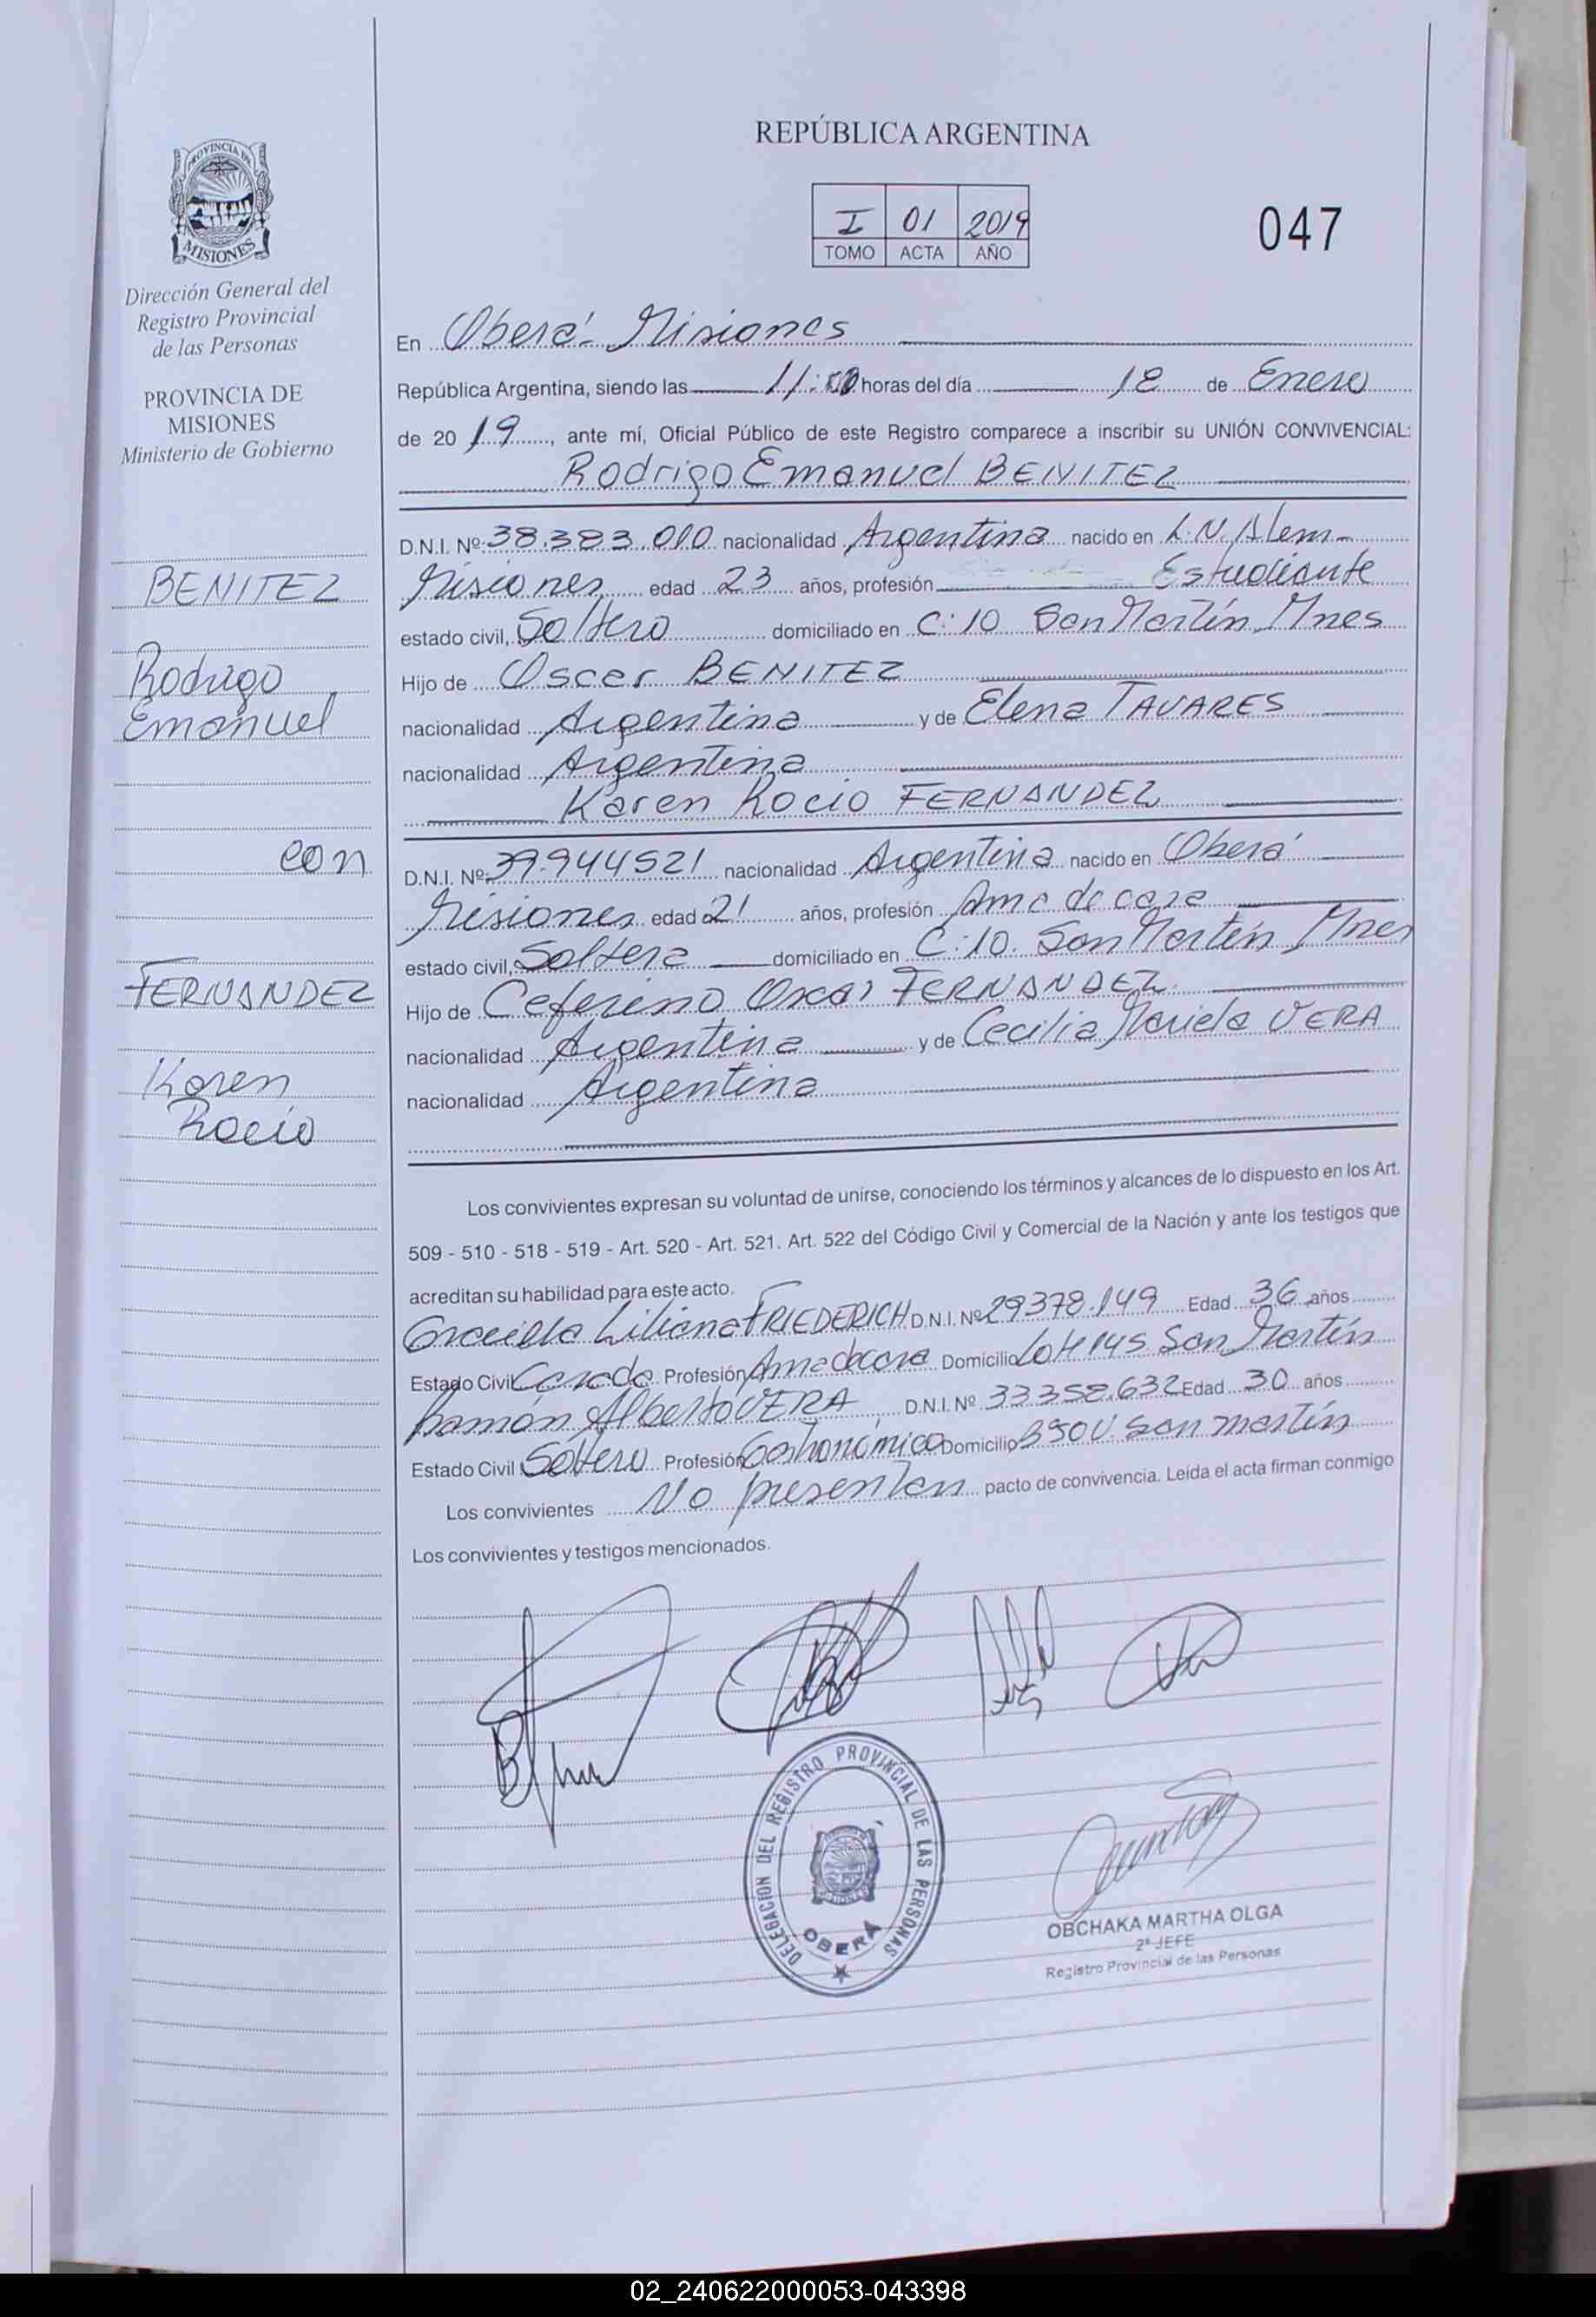 PROVINCIA DE
MISIONES
Dirección General del
Registro Provincial
de las Personas
PROVINCIA DE
MISIONES
Ministerio de Gobierno
BENITEZ
Rodrigo
Emanuel
con
FERNANDEZ
Karen
Rocío
REPÚBLICA ARGENTINA
I 01 2019
TOMO ACTA AÑO
047
En Oberá - Misiones
República Argentina, siendo las 11:00 horas del día 18 de Enero
de 20 19, ante mí, Oficial Público de este Registro comparece a inscribir su UNIÓN CONVIVENCIAL:
Rodrigo Emanuel BENITEZ
D.N.I. Nº 38.383.010 nacionalidad Argentina nacido en L.N. Alem-
Misiones edad 23 años, profesión Estudiante
estado civil, Soltero domiciliado en C:10 San Martín Mnes
Hijo de Oscar BENITEZ
nacionalidad Argentina y de Elena TAVARES
nacionalidad Argentina
Karen Rocio FERNANDEZ
D.N.I. Nº 39.944521 nacionalidad Argentina nacido en Oberá
Misiones edad 21 años, profesión Ama de casa
estado civil, Soltera domiciliado en C:10. San Martín Mnes
Hijo de Ceferino Oscar FERNANDEZ
nacionalidad Argentina y de Cecilia Mariela VERA
nacionalidad Argentina
Los convivientes expresan su voluntad de unirse, conociendo los términos y alcances de lo dispuesto en los Art.
509 - 510 - 518 - 519 - Art. 520 - Art. 521. Art. 522 del Código Civil y Comercial de la Nación y ante los testigos que
acreditan su habilidad para este acto.
Graciela Liliana FRIEDERICH D.N.I. Nº 29378.149 Edad 36 años
Estado Civil Casada Profesión Ama de casa Domicilio San Martín
Ramón Alberto VERA, D.N.I. Nº 33358.632 Edad 30 años
Estado Civil Soltero Profesión Gastronómico Domicilio San Martín
Los convivientes No presentan pacto de convivencia. Leída el acta firman conmigo
Los convivientes y testigos mencionados.
DELEGACION DEL REGISTRO PROVINCIAL DE LAS PERSONAS
OBERÁ
OBCHAKA MARTHA OLGA
2º JEFE
Registro Provincial de las Personas
02_240622000053-043398